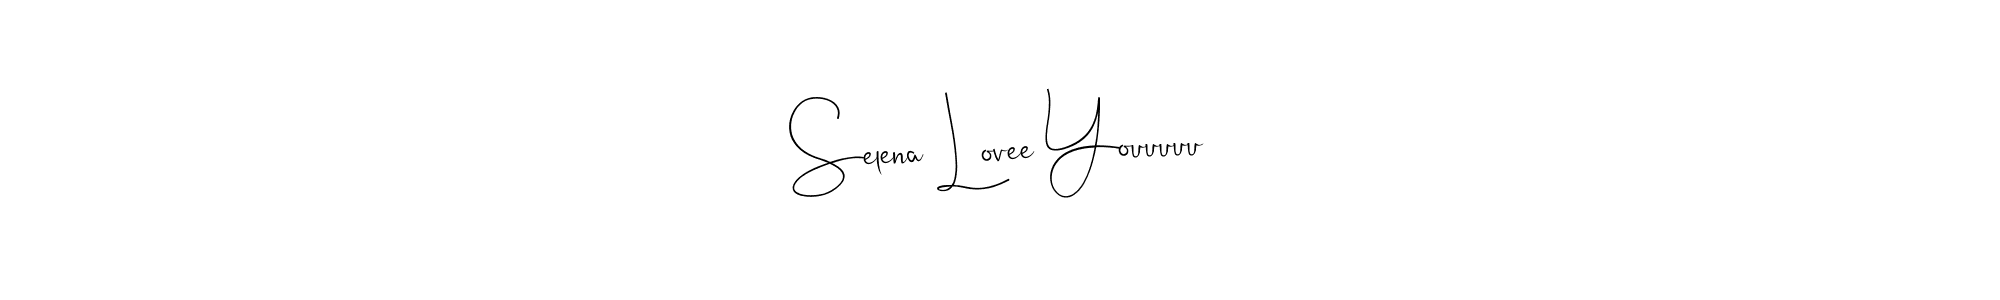 Selena Lovee Youuuuu